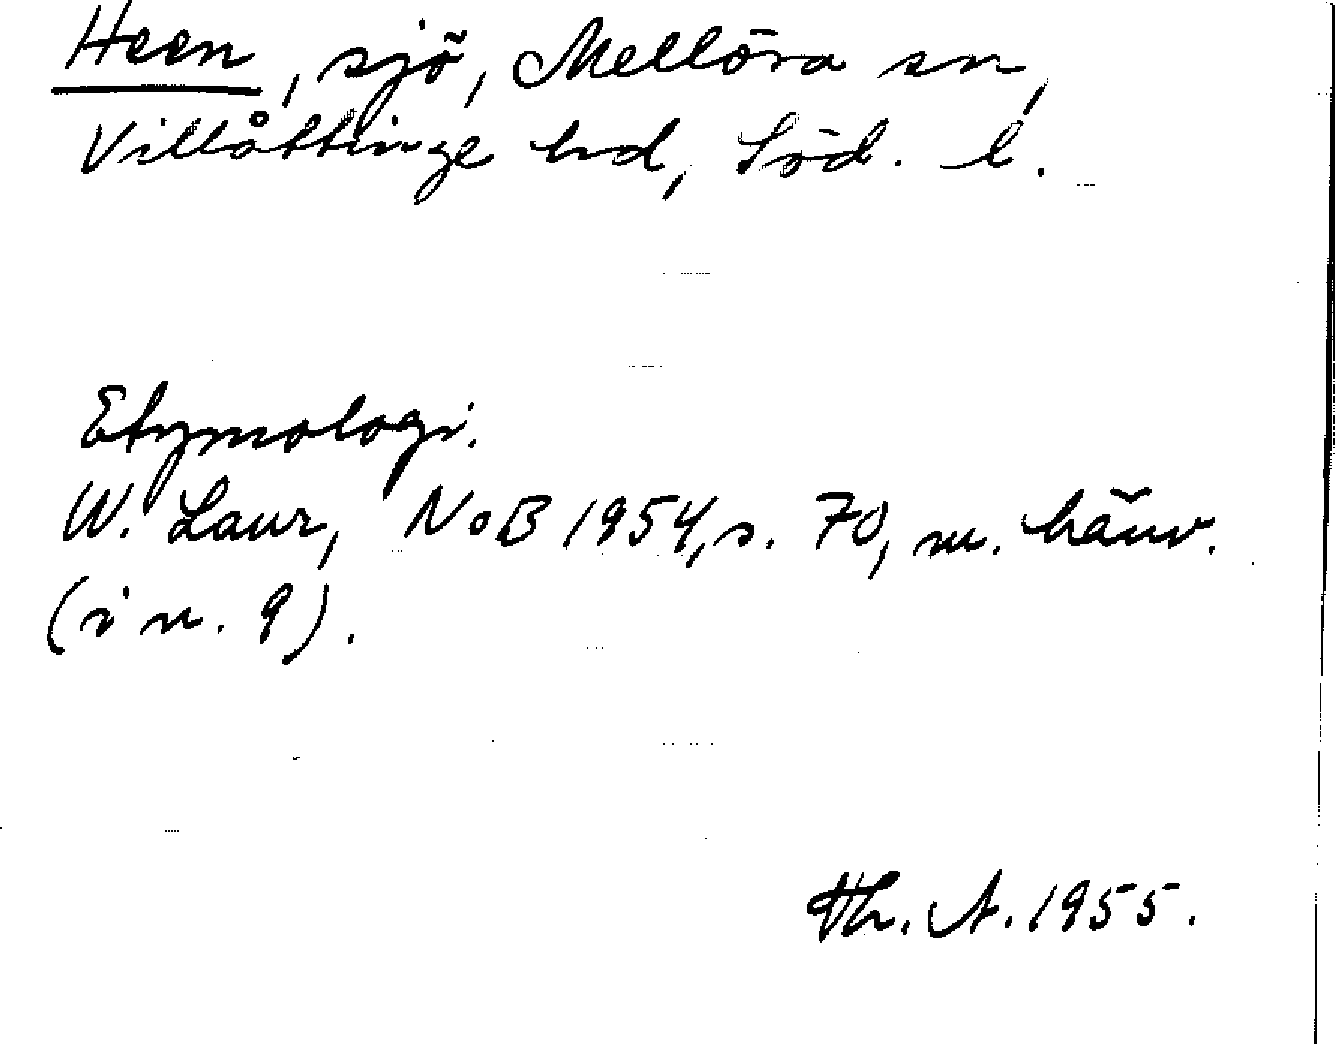 Heen, sjö, Mellösa sn,
Villåttinge hd, Söd. l.
Etymologi.
W. Laur, NoB 1954, s. 70, m. hänv.
(i n. 9).
Th. A. 1955.